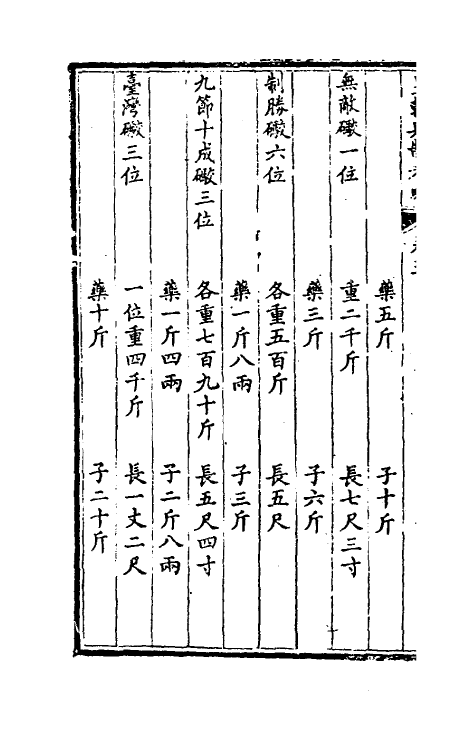 藥五斤 子十斤
無敵礮一位 重二千斤 長七尺三寸
藥三斤 子六斤
制勝礮六位 各重五百斤 長五尺
藥一斤八兩 子三斤
九節十成礮三位 各重七百九十斤 長五尺四寸
藥一斤四兩 子二斤八兩
臺灣礮三位 一位重四千斤 長一丈二尺
藥十斤 子二十斤